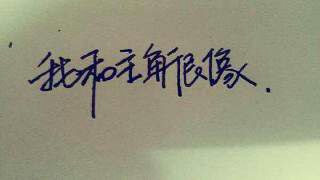 我和主角很像.